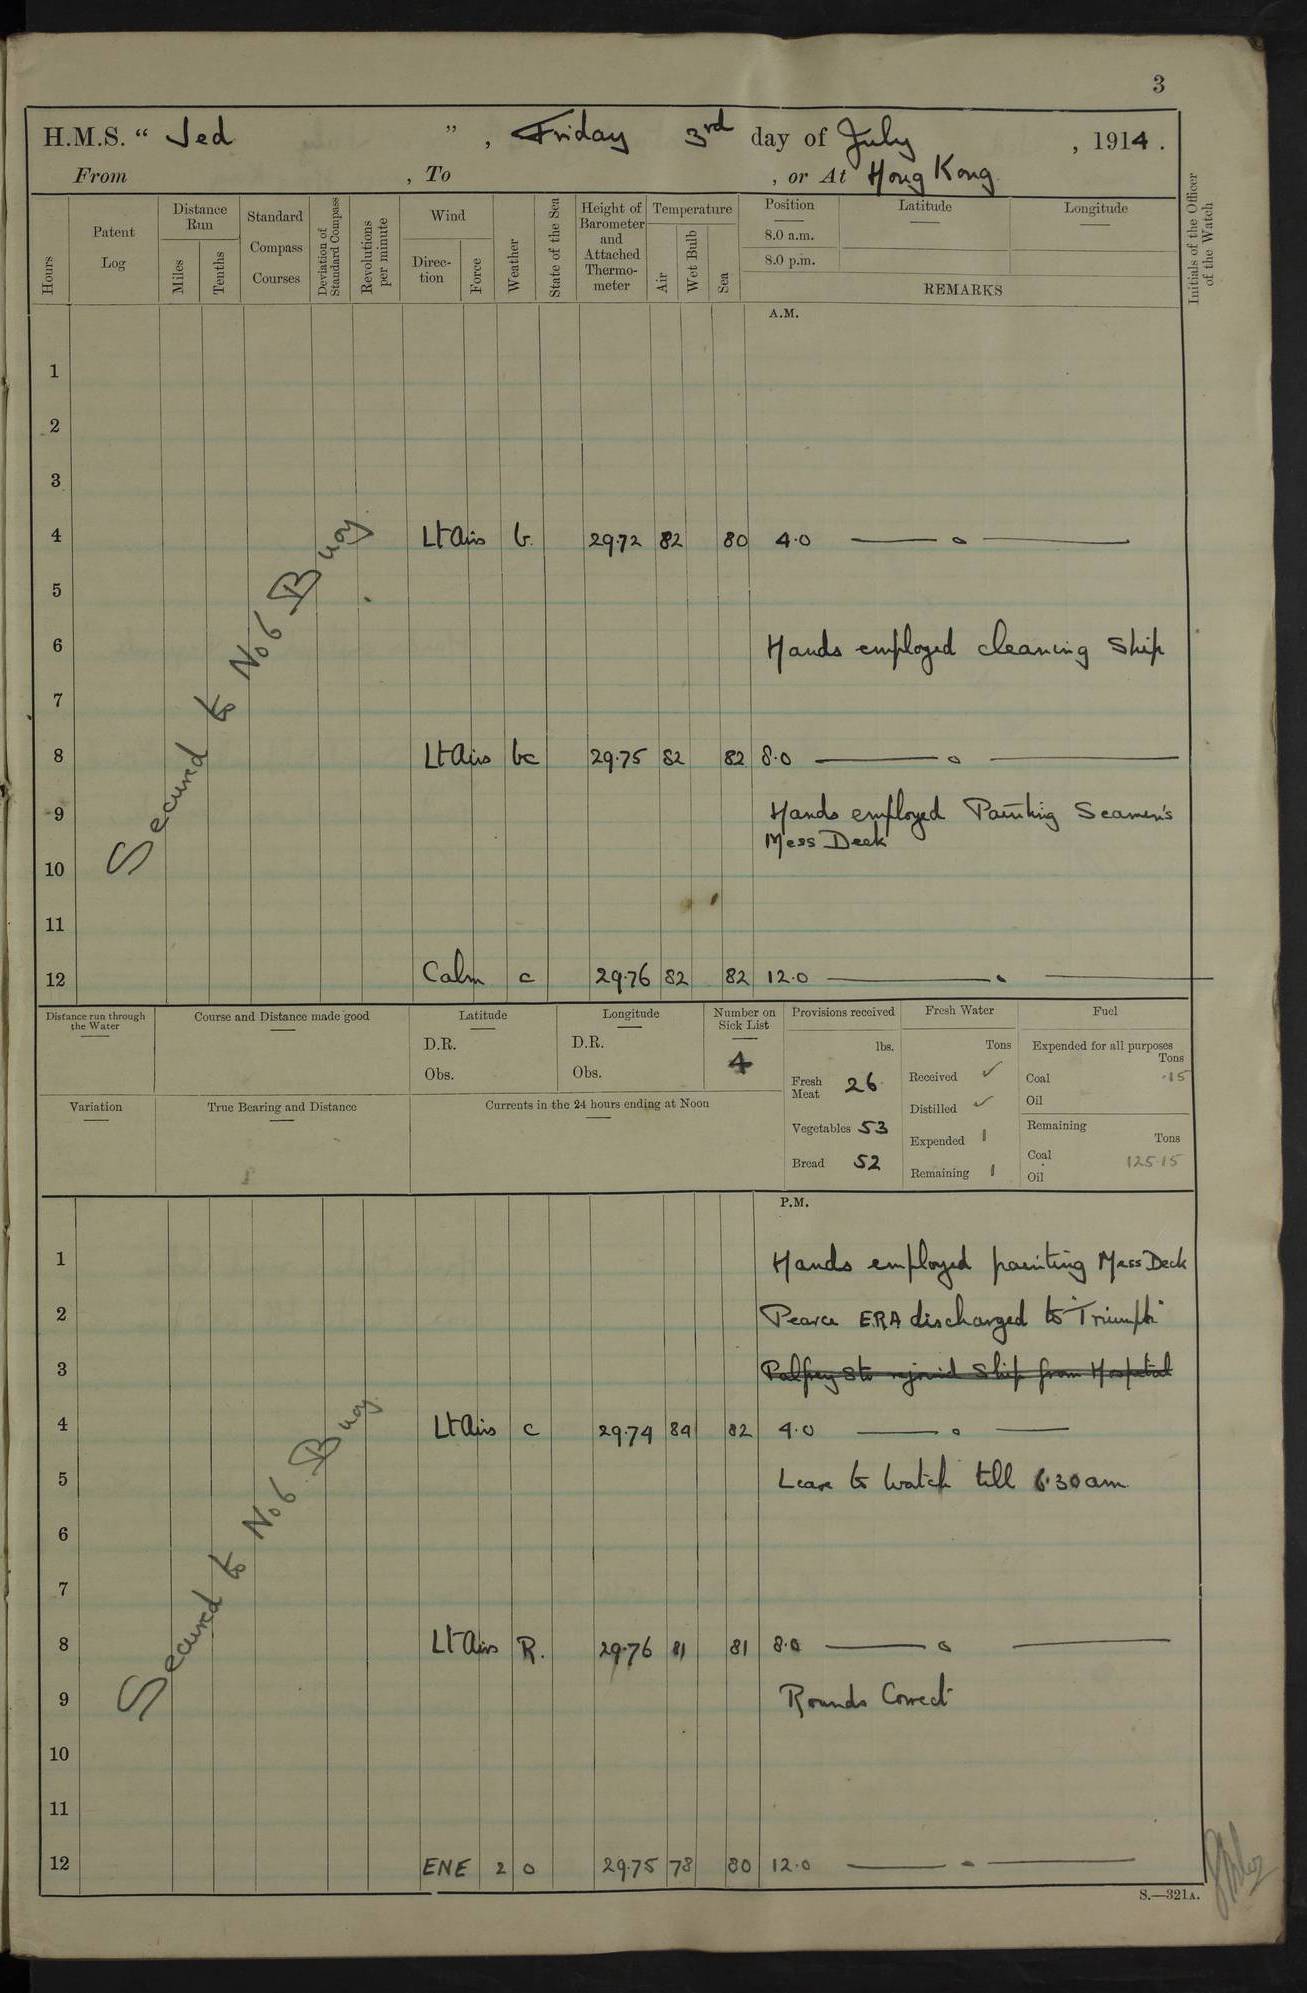 3
H.M.S. “ Jed ”, Friday 3rd day of July, 1914.
From , To , or At Hong Kong
Hours
Patent Log
Distance Run
Miles
Tenths
Standard Compass Courses
Deviation of Standard Compass
Revolutions per minute
Wind
Direc- tion
Force
Weather
State of the Sea
Height of Barometer and Attached Thermo- meter
Temperature
Air
Wet Bulb
Sea
Position
8.0 a.m.
8.0 p.m.
Latitude
Longitude
REMARKS
Initials of the Officer of the Watch
A.M.
1
2
3
4 Lt Airs b. 29.72 82 80 4.0 —— o ——
5
6 Hands employed cleaning Ship
7
8 Lt Airs bc 29.75 82 82 8.0 —— o ——
9 Hands employed Painting Seamen's
Mess Deck
10
11
12 Calm c 29.76 82 82 12.0 —— . ——
Secured to No 6 Buoy
Distance run through the Water
Course and Distance made good
Latitude
D.R.
Obs.
Longitude
D.R.
Obs.
Number on Sick List
4
Provisions received
lbs.
Fresh Meat 26
Vegetables 53
Bread 52
Fresh Water
Tons
Received ✓
Distilled ✓
Expended 1
Remaining 1
Fuel
Expended for all purposes
Tons
Coal .15
Oil
Remaining
Tons
Coal 125.15
Oil
Variation
True Bearing and Distance
Currents in the 24 hours ending at Noon
P.M.
1 Hands employed painting Mess Deck
2 Pearce ERA discharged to "Triumph"
3 Palfrey Sto rejoined Ship from Hospital
4 Lt Airs c 29.74 84 82 4.0 —— o ——
5 Leave to Watch till 6.30 am
6
7
8 Lt Airs R. 29.76 81 81 8.0 —— o ——
9 Rounds Correct
10
11
12 ENE 2 o 29.75 78 80 12.0 —— - ——
Secured to No 6 Buoy
S.—321A.